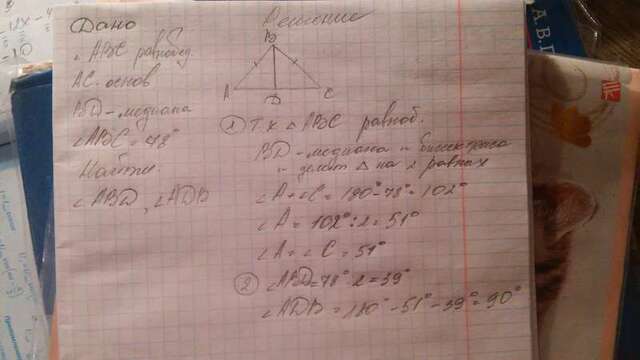 Дано
Решение
△ABC равноб.
AC-основ
BD-медиана
∠ABC=78°
Найти
∠ABD, ∠ADB
B
A
D
C
1) Т.к △ABC равноб.
BD-медиана и биссектриса
и делит △ на 2 равных
∠A+∠C=180°-78°=102°
∠A=102°:2=51°
∠A=∠C=51°
2) ∠ABD=78°:2=39°
∠ADB=180°-51°-39°=90°
А.В.П